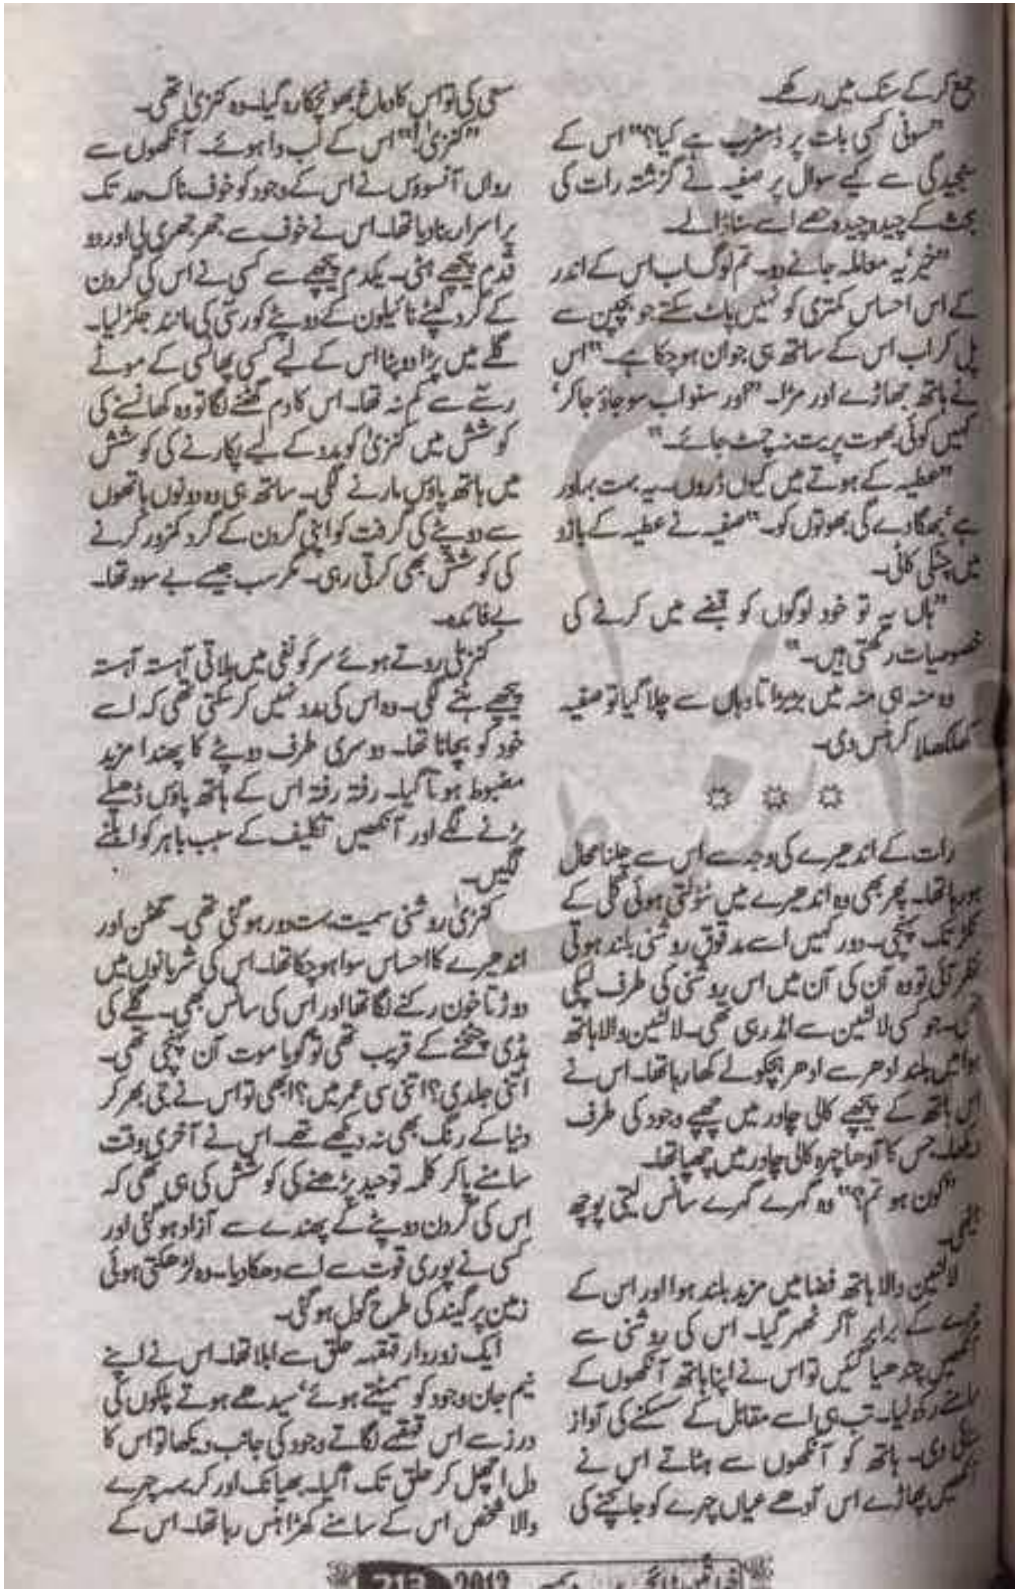 جمع کر کے سنک میں رکھے۔
"سونی کسی بات پر ڈسٹرب ہے کیا؟" اس کے
سنجیدگی سے کیے سوال پر صفیہ نے گزشتہ رات کی
بحث کے چیدہ چیدہ حصے اسے سنا ڈالے۔
"خیر یہ معاملہ جانے دو۔ تم لوگ اب اس کے اندر
کے اس احساس کمتری کو نہیں پاٹ سکتے جو بچپن سے
پل کر اب اس کے ساتھ ہی جوان ہو چکا ہے۔" اس
نے ہاتھ جھاڑے اور مڑا۔ "اور سنو اب سو جاؤ جا کر'
کہیں کوئی بھوت پریت نہ چمٹ جائے۔"
"عطیہ کے ہوتے میں کیوں ڈروں۔ یہ بہت بہادر
ہے' بھگا دے گی بھوتوں کو۔" صفیہ نے عطیہ کے بازو
میں چٹکی کاٹی۔
"ہاں یہ تو خود لوگوں کو قبضے میں کرنے کی
خصوصیات رکھتی ہیں۔"
وہ منہ ہی منہ میں بڑبڑاتا وہاں سے چلا گیا تو صفیہ
کھلکھلا کر ہنس دی۔
رات کے اندھیرے کی وجہ سے اس سے چلنا محال
ہو رہا تھا۔ پھر بھی وہ اندھیرے میں ٹٹولتی ہوئی گلی کے
نکڑ تک پہنچی۔ دور کہیں اسے مدقوق روشنی بلند ہوتی
نظر آئی تو وہ آن کی آن میں اس روشنی کی طرف لپکی
تھی۔ جو کسی لالٹین سے امڈ رہی تھی۔ لالٹین والا ہاتھ
ہوا میں بلند ادھر سے ادھر ہچکولے کھا رہا تھا۔ اس نے
اس ہاتھ کے پیچھے کالی چادر میں چھپے وجود کی طرف
دیکھا۔ جس کا آدھا چہرہ کالی چادر میں چھپا تھا۔
"کون ہو تم؟" وہ گہرے گہرے سانس لیتی پوچھ
بیٹھی۔
لالٹین والا ہاتھ فضا میں مزید بلند ہوا اور اس کے
چہرے کے برابر آ کر ٹھہر گیا۔ اس کی روشنی سے
آنکھیں چندھیا گئیں تو اس نے اپنا ہاتھ آنکھوں کے
سامنے رکھ لیا۔ تب ہی اسے مقابل کے سسکنے کی آواز
سنائی دی۔ ہاتھ کو آنکھوں سے ہٹاتے اس نے
آنکھیں پھاڑے اس آدھے عیاں چہرے کو جانچنے کی
سعی کی تو اس کا دماغ بھونچکا رہ گیا۔ وہ کنزیٰ تھی۔
"کنزیٰ!" اس کے لب وا ہوئے۔ آنکھوں سے
رواں آنسوؤں نے اس کے وجود کو خوف ناک حد تک
پراسرار بنا دیا تھا۔ اس نے خوف سے جھرجھری لی اور دو
قدم پیچھے ہٹی۔ یکدم پیچھے سے کسی نے اس کی گردن
کے گرد لپٹے نائیلون کے دوپٹے کو رسی کی مانند جکڑ لیا۔
گلے میں پڑا دوپٹا اس کے لیے کسی پھانسی کے موٹے
رسے سے کم نہ تھا۔ اس کا دم گھٹنے لگا تو وہ کھانسنے کی
کوشش میں کنزیٰ کو مدد کے لیے پکارنے کی کوشش
میں ہاتھ پاؤں مارنے لگی۔ ساتھ ہی وہ دونوں ہاتھوں
سے دوپٹے کی گرفت کو اپنی گردن کے گرد کمزور کرنے
کی کوشش بھی کرتی رہی۔ مگر سب جیسے بے سود تھا۔
بے فائدہ۔
کنزیٰ روتے ہوئے سر کو نفی میں ہلاتی آہستہ آہستہ
پیچھے ہٹنے لگی۔ وہ اس کی مدد نہیں کر سکتی تھی کہ اسے
خود کو بچانا تھا۔ دوسری طرف دوپٹے کا پھندا مزید
مضبوط ہوتا گیا۔ رفتہ رفتہ اس کے ہاتھ پاؤں ڈھیلے
پڑنے لگے اور آنکھیں تکلیف کے سبب باہر کو ابلنے
لگیں۔
کنزیٰ روشنی سمیت بہت دور ہو گئی تھی۔ گھٹن اور
اندھیرے کا احساس سوا ہو چکا تھا۔ اس کی شریانوں میں
دوڑتا خون رکنے لگا تھا اور اس کی سانس بھی۔ گلے کی
ہڈی چٹخنے کے قریب تھی تو گویا موت آن پہنچی تھی۔
اتنی جلدی؟ اتنی سی عمر میں؟ ابھی تو اس نے جی بھر کر
دنیا کے رنگ بھی نہ دیکھے تھے۔ اس نے آخری وقت
سامنے پا کر کلمہ توحید پڑھنے کی کوشش کی ہی تھی کہ
اس کی گردن دوپٹے کے پھندے سے آزاد ہو گئی اور
کسی نے پوری قوت سے اسے دھکا دیا۔ وہ لڑھکتی ہوئی
زمین پر گیند کی طرح گول ہو گئی۔
ایک زوردار قہقہہ حلق سے ابلا تھا۔ اس نے اپنے
نیم جان وجود کو سمیٹتے ہوئے' سیدھے ہوتے پلکوں کی
درز سے اس قہقہے لگاتے وجود کی جانب دیکھا تو اس کا
دل اچھل کر حلق تک آ گیا۔ بھیانک اور کریہہ چہرے
والا شخص اس کے سامنے کھڑا ہنس رہا تھا۔ اس کے
213 2012